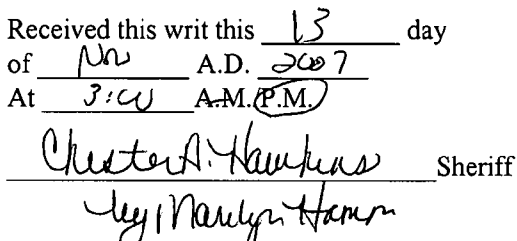 Received this writ this 13 day
of Nov A.D. 2007
At 3:00 A.M./P.M.
Chester A. Hawkins Sheriff
by Marilyn